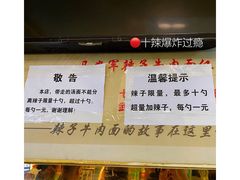 十辣爆炸过瘾
敬告
本店，带走的汤面不能分
离辣子限量十勺，超过十勺，
每勺一元，谢谢理解！
温馨提示
辣子限量，最多十勺
超量加辣子，每勺一元
辣子牛肉面的故事在这里